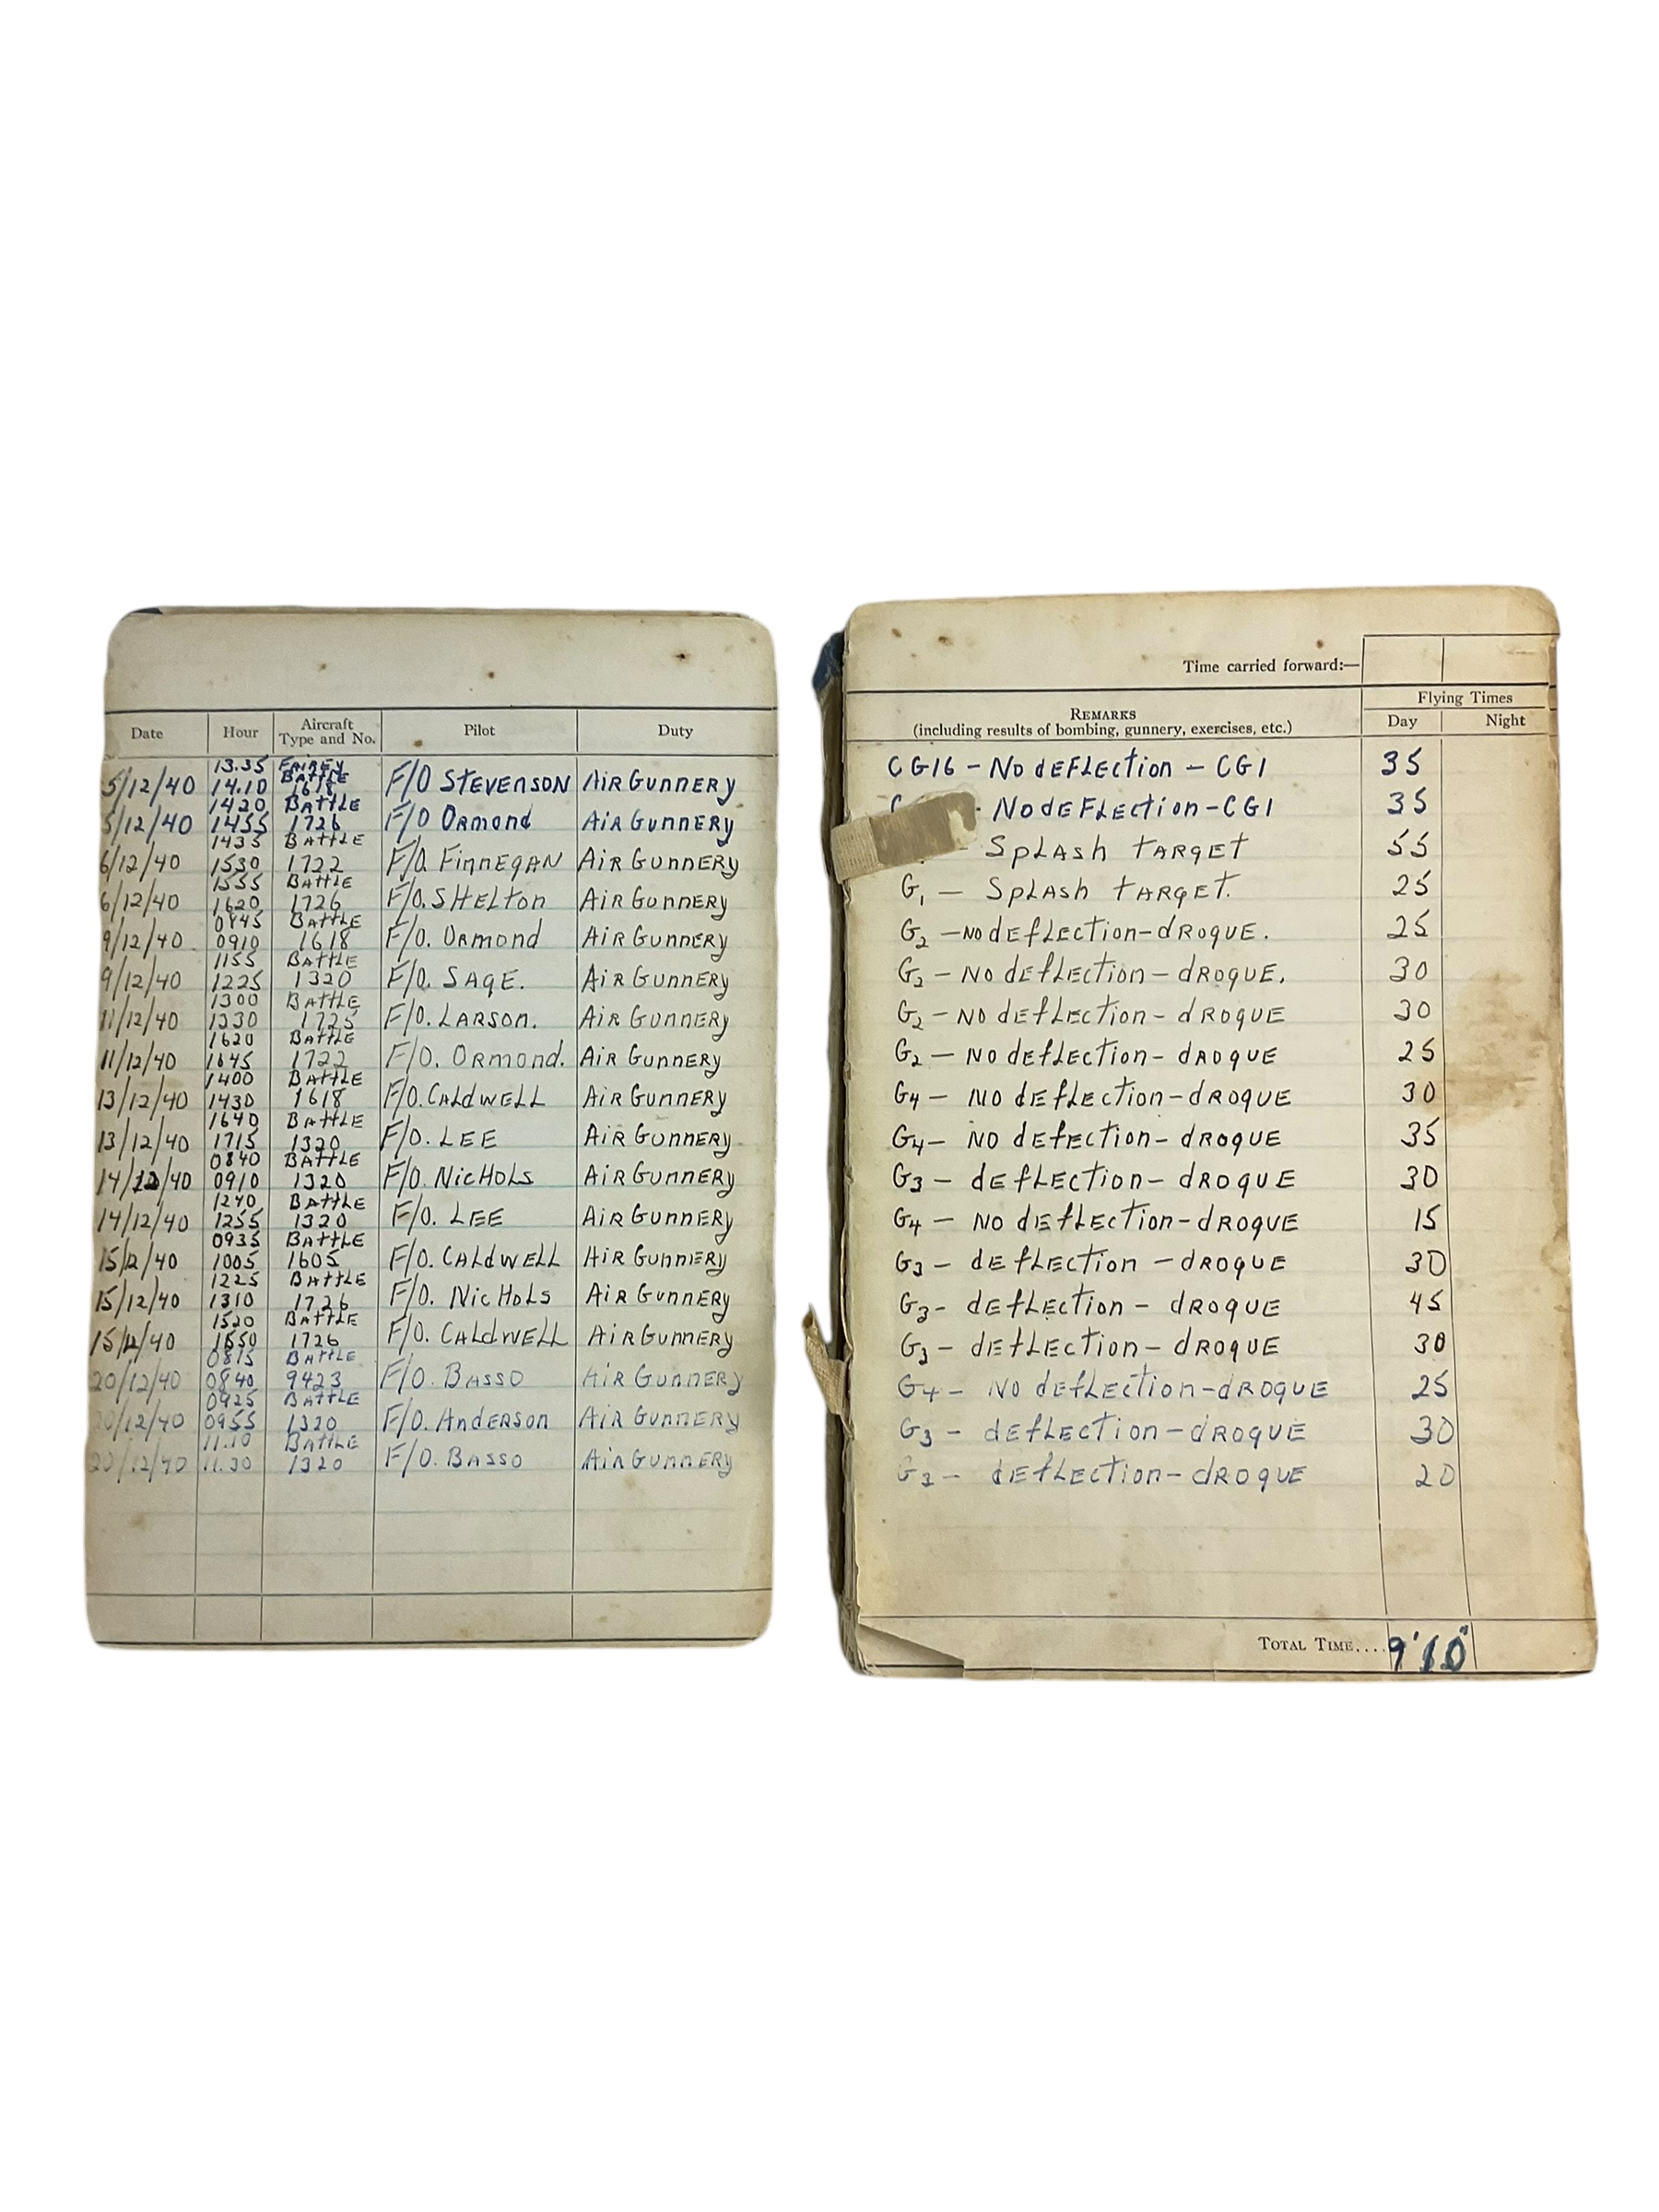 Date Hour Aircraft Type and No. Pilot Duty
13.35 FAIREY
5/12/40 14.10 BATTLE 1618 F/O STEVENSON AIR GUNNERY
1420 BATTLE
5/12/40 1455 1726 F/O ORMOND AIR GUNNERY
1435 BATTLE
6/12/40 1530 1722 F/O. FINNEGAN AIR GUNNERY
1555 BATTLE
6/12/40 1620 1726 F/O. SHELTON AIR GUNNERY
0845 BATTLE
9/12/40 0910 1618 F/O. ORMOND AIR GUNNERY
1155 BATTLE
9/12/40 1225 1320 F/O. SAGE. AIR GUNNERY
1300 BATTLE
11/12/40 1330 1725 F/O. LARSON. AIR GUNNERY
1620 BATTLE
11/12/40 1645 1722 F/O. ORMOND. AIR GUNNERY
1400 BATTLE
13/12/40 1430 1618 F/O. CALDWELL AIR GUNNERY
1640 BATTLE
13/12/40 1715 1320 F/O. LEE AIR GUNNERY
0840 BATTLE
14/12/40 0910 1320 F/O. NICHOLS AIR GUNNERY
1240 BATTLE
14/12/40 1255 1320 F/O. LEE AIR GUNNERY
0935 BATTLE
15/12/40 1005 1605 F/O. CALDWELL AIR GUNNERY
1225 BATTLE
15/12/40 1310 1726 F/O. NICHOLS AIR GUNNERY
1520 BATTLE
15/12/40 1550 1726 F/O. CALDWELL AIR GUNNERY
0815 BATTLE
20/12/40 0840 9423 F/O. BASSO AIR GUNNERY
0925 BATTLE
20/12/40 0955 1320 F/O. ANDERSON AIR GUNNERY
11.10 BATTLE
20/12/40 11.30 1320 F/O. BASSO AIR GUNNERY
Time carried forward:—
Flying Times
REMARKS
(including results of bombing, gunnery, exercises, etc.) Day Night
CG16 - NO DEFLECTION - CG1 35
- NO DEFLECTION - CG1 35
- SPLASH TARGET 55
G1 - SPLASH TARGET. 25
G2 - NO DEFLECTION - DROGUE. 25
G2 - NO DEFLECTION - DROGUE. 30
G2 - NO DEFLECTION - DROGUE 30
G2 - NO DEFLECTION - DROGUE 25
G4 - NO DEFLECTION - DROGUE 30
G4 - NO DEFECTION - DROGUE 35
G3 - DEFLECTION - DROGUE 30
G4 - NO DEFLECTION - DROGUE 15
G3 - DEFLECTION - DROGUE 30
G3 - DEFLECTION - DROGUE 45
G3 - DEFLECTION - DROGUE 30
G4 - NO DEFLECTION - DROGUE 25
G3 - DEFLECTION - DROGUE 30
G3 - DEFLECTION - DROGUE 20
TOTAL TIME.... 9'10"